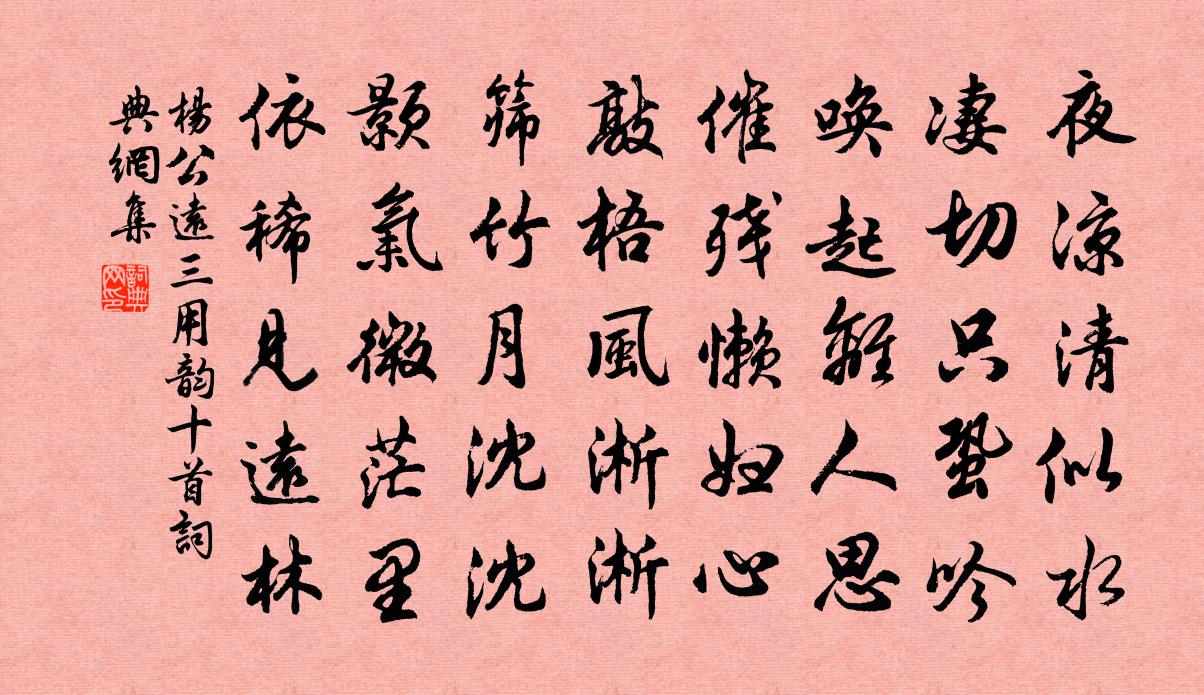 夜涼清似水
淒切只蛩吟
喚起離人思
催残懶妇心
敲梧風淅淅
篩竹月沈沈
顥氣微茫里
依稀見遠林
楊公遠三用韵十首詞
典網集
詞典网印